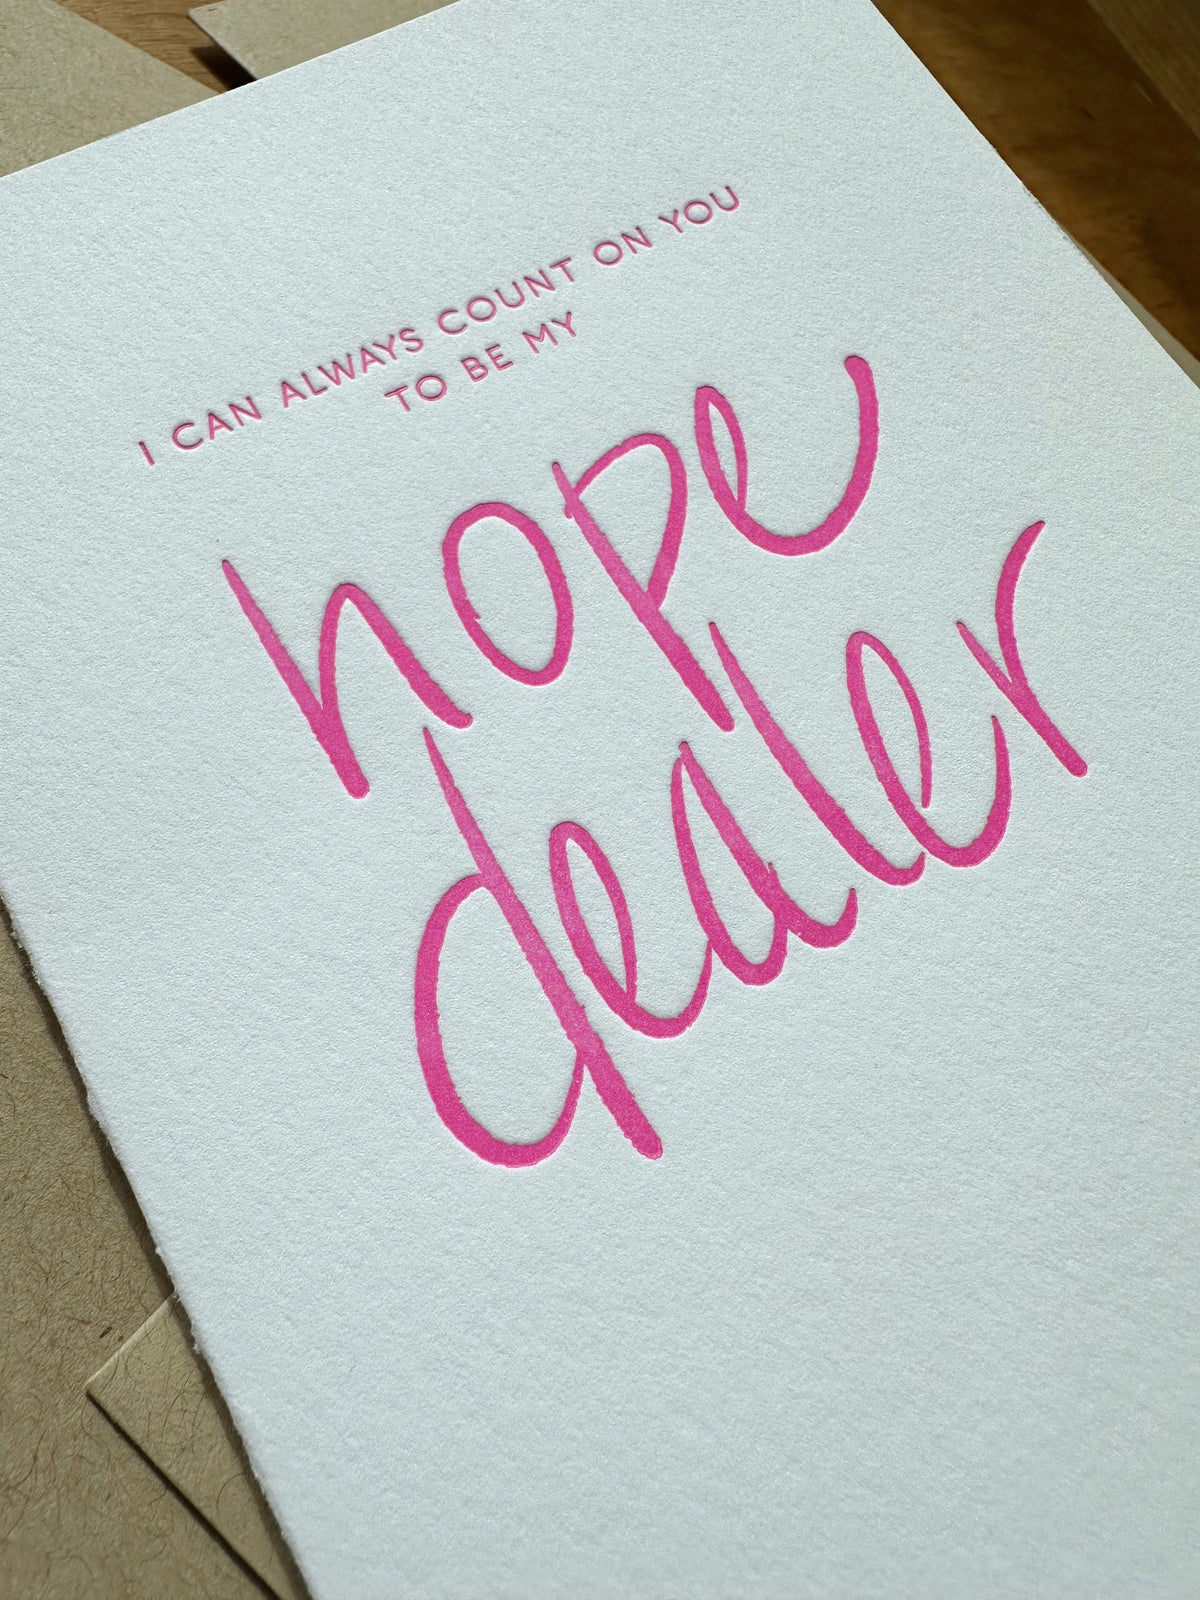 I CAN ALWAYS COUNT ON YOU
TO BE MY
hope
dealer